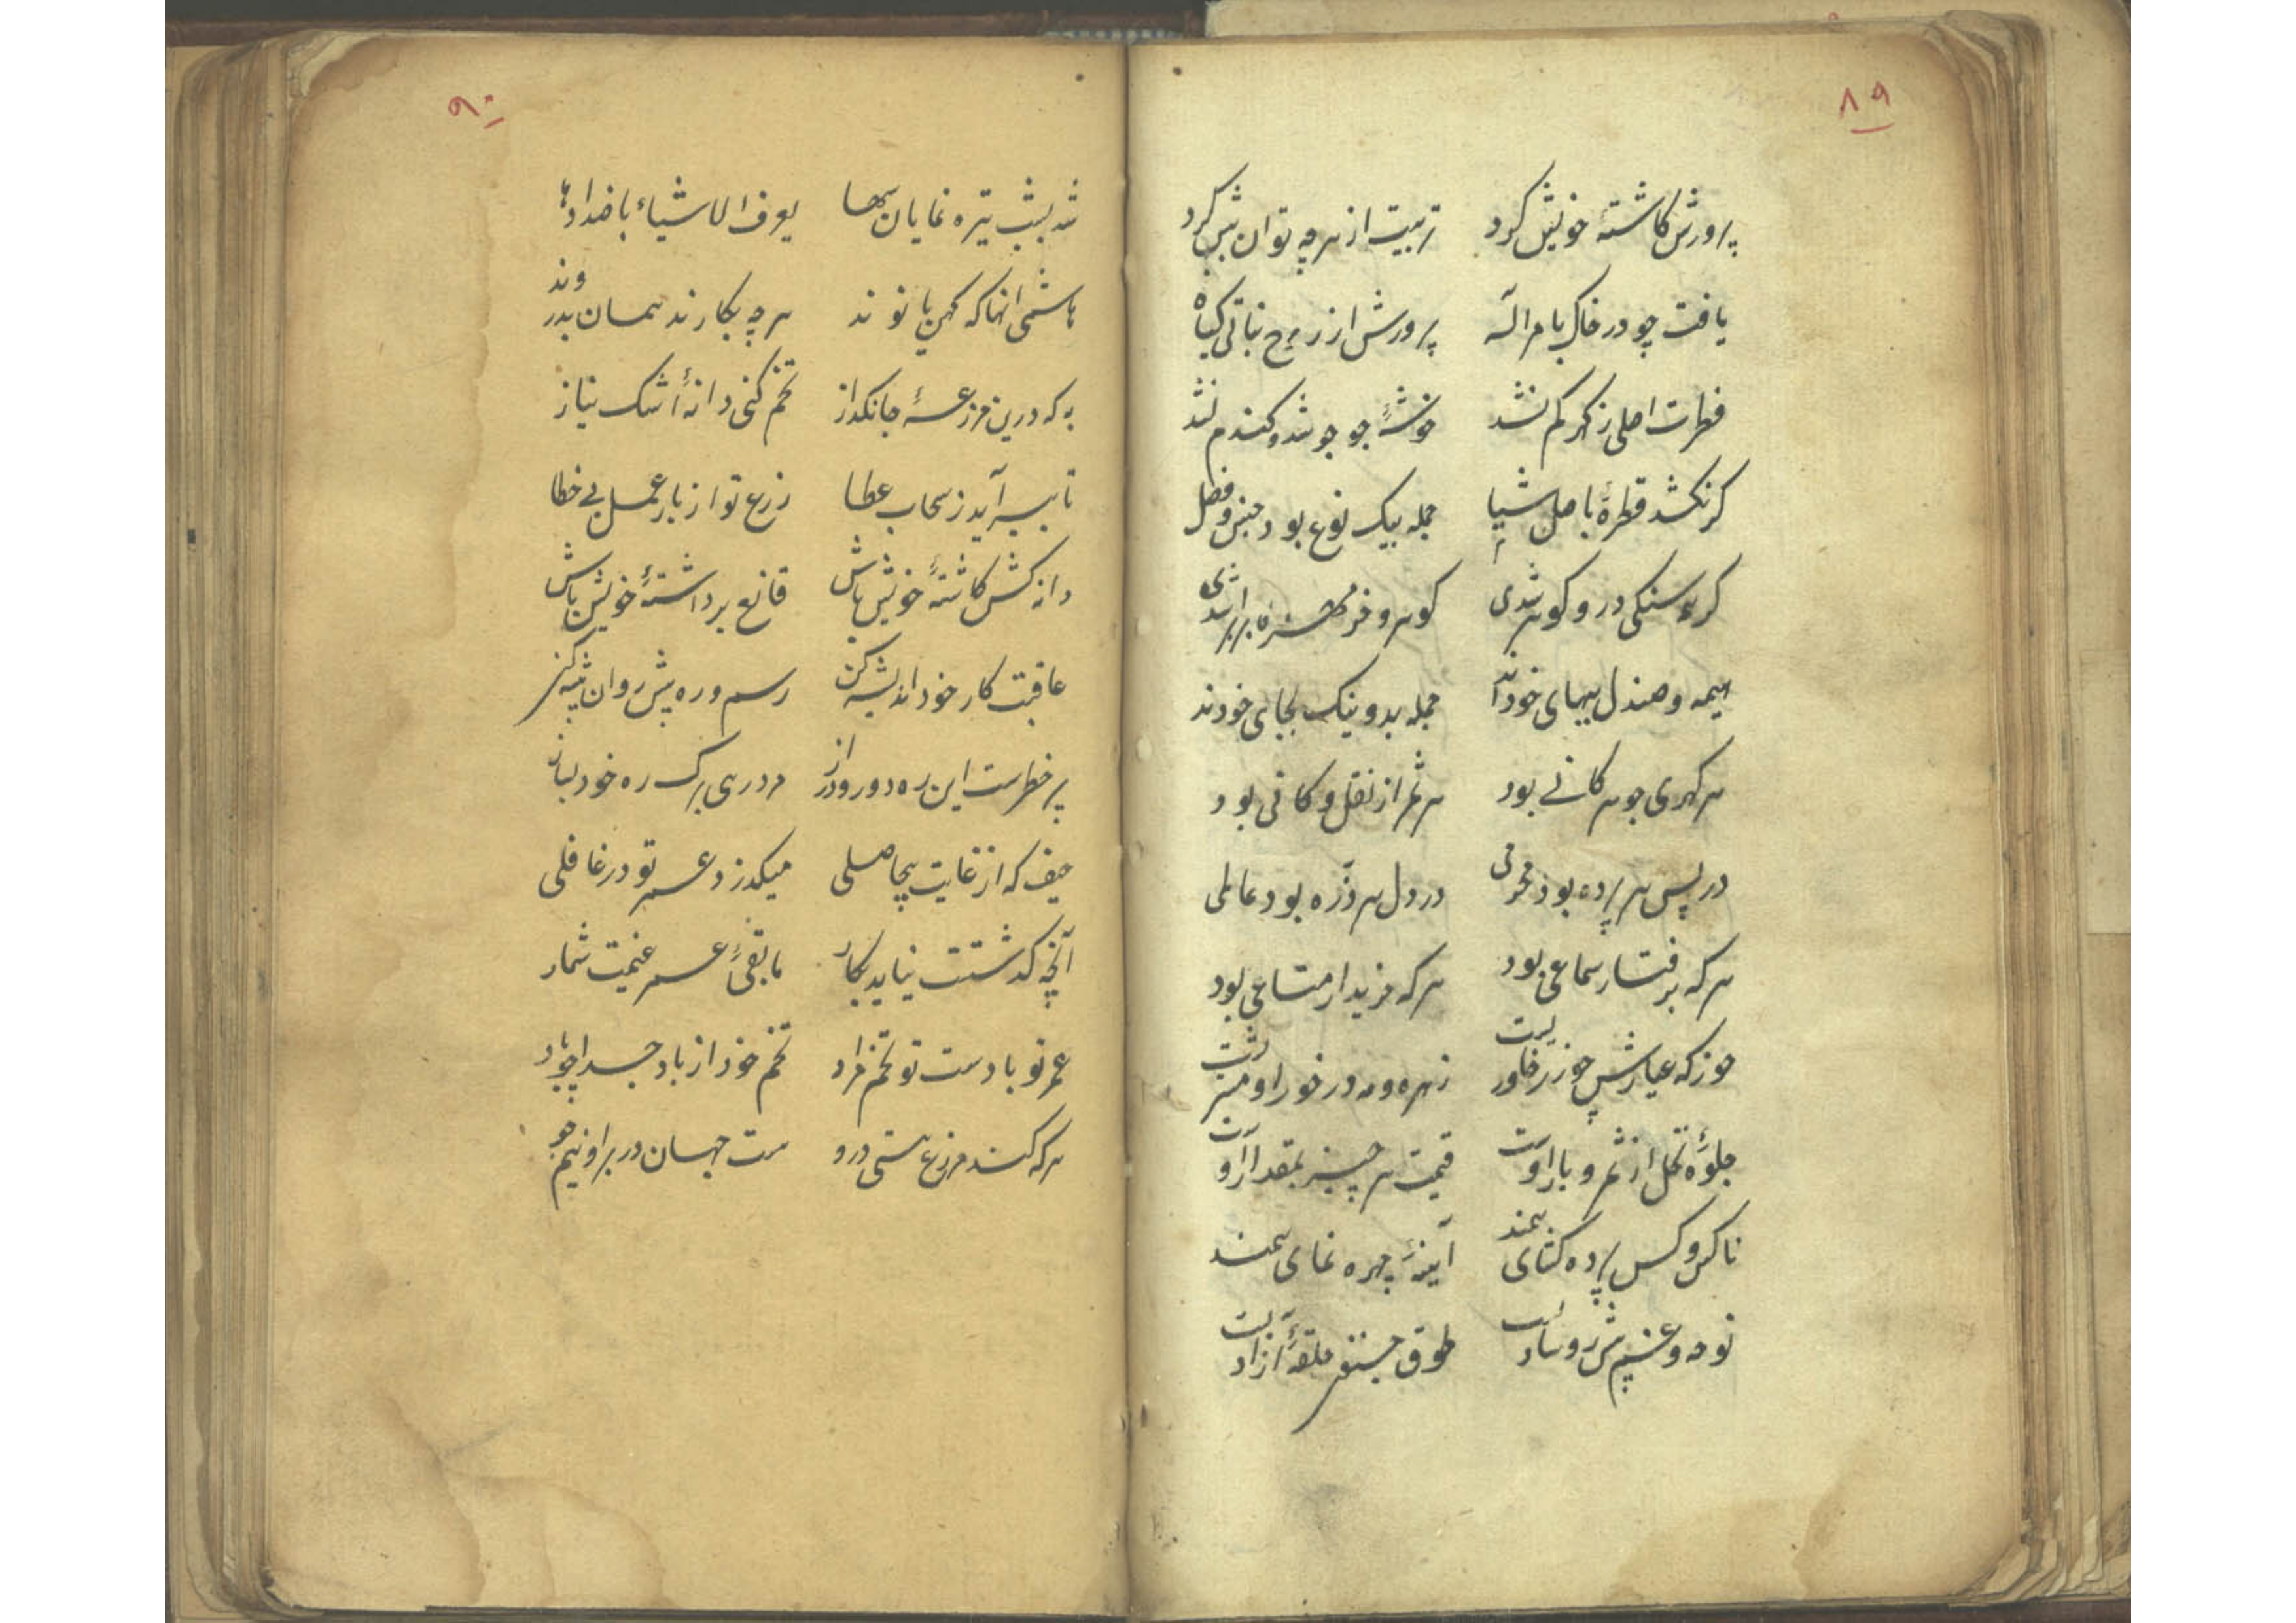 ۸۹
پرورش کاشتهٔ خویش کرد تربیت از هرچه توان بیش کرد
یافت چو در خاک بامر اله پرورش از زرع نباتی کیاه
فطرت اصلی ز کهر کم نشد خوشهٔ جو جو شد و کندم نشد
کر نکشد قطره باصل اشیا جمله بیک نوع بود جنس و فصل
سنکی در و کوهر شدی کوهر و خرمهره برابر شدی
هیمه و صندل ببهای خودند جمله بد و نیک بجای خودند
هر کهری جوهر کانی بود هر ثمر از نقل و کانی بود
در پس هر پرده بود محرمی در دل هر ذره بود عالمی
هر که برفتار سماعی بود هر که خریدار متاعی بود
خور که عیارش چو زر خاوریست زهره و مه در خور او مشتریست
جلوهٔ نخل از ثمر و بار اوست قیمت هر چیز بمقدار اوست
ناکس و کس پرده کشای همند آینهٔ چهره نمای همند
نوحه و غم پیش رو شادیست طوق حلقهٔ آزادیست
۹۰
شد بشب تیره نمایان سها یعرف الاشیاء باضدادها
هاشمی انها که کهن یا نوند هرچه بکارند همان بدروند
به که درین مزرعهٔ جانکداز تخم کنی دانهٔ اشک نیاز
تا بسر آید ز سحاب عطا زرع تو از بار عمل بی خطا
دانه کش کاشتهٔ خویش باش قانع برداشتهٔ خویش باش
عاقبت کار خود اندیشه کن رسم و ره پیش روان پیشه کن
پر خطرست این ره دور و دراز مرد رهی برک ره خود بساز
حیف که از غایت بیحاصلی میکذرد عمر تو در غافلی
آنچه کذشتت نیاید بکار مابقیٔ عمر غنیمت شمار
عمر تو بادست تو تخم مراد تخم خود از باد
هر که کند مزرع هستی درو هست جهان در بر او نیم جو